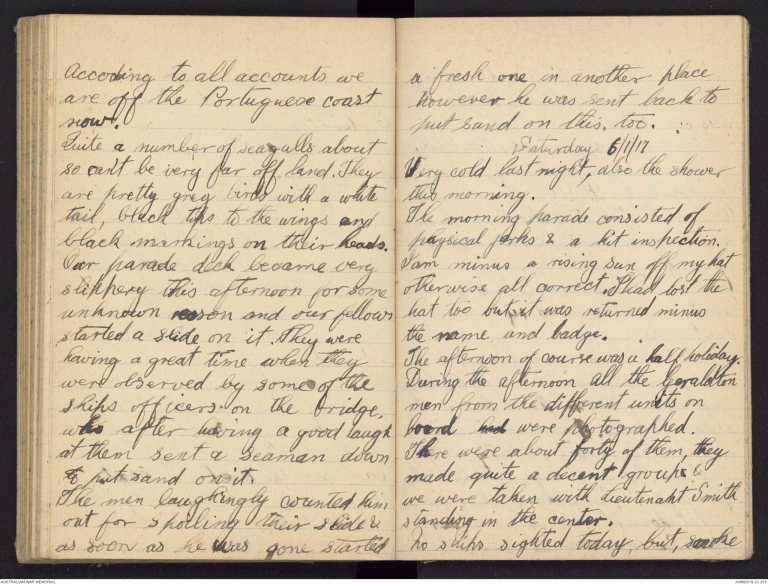 Accoding to all accounts we
are off the Portuguese coast
now.
Quite a number of seagulls about
so can't be very far off land. They
are pretty grey birds with a white
tail, black tips to the wings and
black markings on their heads.
Our parade deck became very
slippery this afternoon for some
unknown reason and our fellows
started a slide on it. They were
having a great time when they
were observed by some of the
ships officers on the bridge,
who after having a good laugh
at them sent a seaman down
to put sand on it.
The men laughingly counted him
out for spoiling their slide &
as soon as he was gone started
a fresh one in another place
however he was sent back to
put sand on this. too.
Saturday 6/1/17
Very cold last night, also the shower
this morning.
The morning parade consisted of
physical jerks & a kit inspection.
I am minus a rising sun off my hat
otherwise all correct. I had lost the
hat too but it was returned minus
the name and badge.
The afternoon of course was a half holiday.
During the afternoon all the Geraldton
men from the different units on
board were photographed.
There were about forty of them, they
made quite a decent group &
we were taken with Lieutenant Smith
standing in the center.
No ships sighted today, but, smoke
AUSTRALIAN WAR MEMORIAL